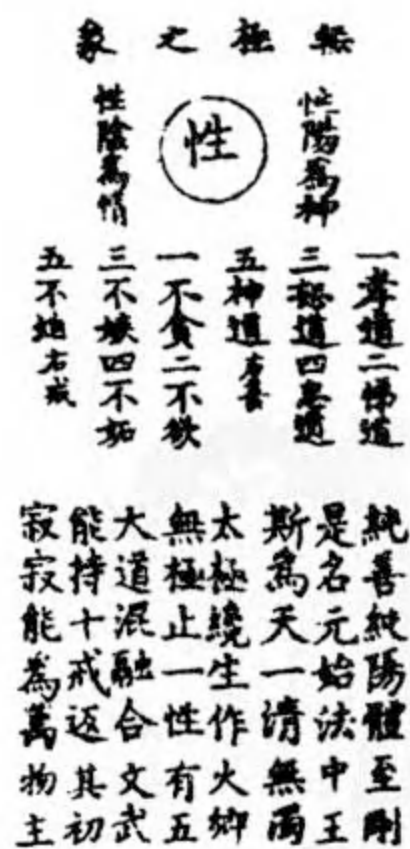 無極之象
性陽為神
性
性陰為情
一孝道二悌道
三道四道
五神道右善
一不貪二不欲
三不嫉四不妬
五不右戒
純善純陽體至剛
是名元始法中王
斯為天一清無兩
太極纔生作火鄉
無極止一性有五
大道混融合文武
能持十戒返其初
寂寂能為萬物主